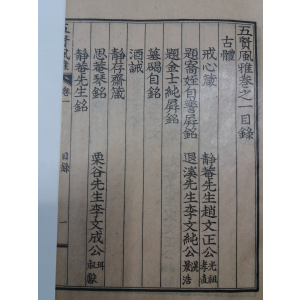 五賢風雅卷之一目錄
古體
戒心箴 靜菴先生趙文正公光祖孝直
題寗姪自警屛銘 退溪先生李文純公滉景浩
題金士純屛銘
墓碣自銘
酒誡
靜存齋箴
思菴琴銘 栗谷先生李文成公珥叔獻
靜菴先生銘
五賢風雅 卷一 目錄 一